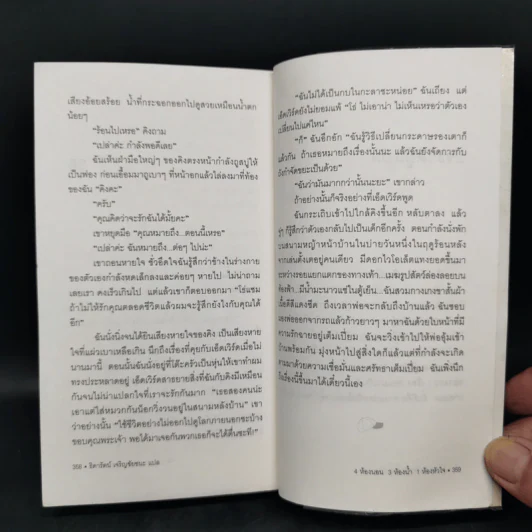 เสียงอ้อยสร้อย น้ำที่กระฉอกออกไปดูสวยเหมือนน้ำตก
น้อยๆ
"ร้อนไปเหรอ" คิงถาม
"เปล่าค่ะ กำลังพอดีเลย"
ฉันเห็นฝ่ามือใหญ่ๆ ของคิงตรงหน้ากำลังถูสบู่ให้
เป็นฟอง ก่อนเอื้อมมาถูเบาๆ ที่หน้าอกแล้วไล่ลงมาที่ท้อง
ของฉัน "คิงคะ"
"ครับ"
"คุณคิดว่าจะรักฉันได้มั้ยคะ"
เขาหยุดมือ "คุณหมายถึง...ตอนนี้เหรอ"
"เปล่าค่ะ ฉันหมายถึง...ต่อๆ ไปน่ะ"
เขาถอนหายใจ ชั่วอึดใจฉันรู้สึกว่าช้างในร่างกาย
ของตัวเองกำลังหดเล็กลงและค่อยๆ หายไป ไม่น่าถาม
เลยเรา คงเร็วเกินไป แต่แล้วเขาก็ตอบออกมา "โธ่แชม
ถ้าไม่ให้รักคุณตลอดชีวิตแล้วผมจะรู้สึกยังไงกับคุณได้
อีก"
ฉันนั่งนิ่งจนได้ยินเสียงหายใจของคิง เป็นเสียงหาย
ใจที่แผ่วเบาเหลือเกิน นึกถึงเรื่องที่คุยกับเอ็ดเวิร์ดเมื่อไม่
นานมานี้ ตอนนั้นฉันนั่งอยู่ที่โต๊ะครัวเป็นหุ่นให้เขาทำผม
ทรงประหลาดอยู่ เอ็ดเวิร์ดสารยายสิ่งที่ฉันกับคิงมีเหมือน
กันจนไม่น่าแปลกใจที่เราจะรักกันมาก "เธอสองคนน่ะ
เอาแต่ใส่หมวกกันน็อกวิ่งวนอยู่ในสนามหลังบ้าน" เขา
ว่าอย่างนั้น "ใช้ชีวิตอย่างไม่ออกไปดูโลกภายนอกซะบ้าง
ขอบคุณพระเจ้า พอได้มาเจอกันพวกเธอก็จะได้ตื่นซะที!"
368 • ธิดารัตน์ เจริญชัยชนะ แปล
"ฉันไม่ได้เป็นกบในกะลาซะหน่อย" ฉันเถียง แต่
เอ็ดเวิร์ดก็ยังไม่ยอมแพ้ "โธ่ ไม่เอาน่า ไม่เห็นเหรอว่าตัวเอง
เปลี่ยนไปแค่ไหน"
"ก็" ฉันอึกอัก "ฉันรู้วิธีเปลี่ยนกระดาษรองเตาก็
แล้วกัน ถ้าเธอหมายถึงเรื่องนั้นนะ แล้วฉันยังจัดการกับ
ถังกำจัดขยะเป็นด้วย"
"ฉันว่ามันมากกว่านั้นนะยะ" เขากล่าว
ถ้าอย่างนั้นก็จริงอย่างที่เอ็ดเวิร์ดพูด
ฉันกระเถิบเข้าไปใกล้คิงขึ้นอีก หลับตาลง แล้ว
ๆ ก็รู้สึกว่าตัวเองกลับไปเป็นเด็กอีกครั้ง ตอนกำลังนั่งพัก
สนามหญ้าหน้าบ้านในบ่ายวันหนึ่งในฤดูร้อนหลัง
จากเล่นตั้งเตอยู่คนเดียว มีดอกไวโอเล็ตแทงยอดขึ้นมา
ระหว่างรอยแยกแตกของทางเท้า...เมฆรูปสัตว์ล่องลอยบน
ท้องฟ้า...มีน้ำมะนาวแช่ในตู้เย็น...ฉันสวมกางเกงขาสั้นผ้า
ถึงเวลาพ่อจะกลับถึงบ้านแล้ว ฉันชอบ
มองพ่อออกจากรถแล้วก้าวยาวๆ มาหาฉันด้วยใบหน้าที่มี
ความรักฉายอยู่เต็มเปี่ยม ฉันจะวิ่งเข้าไปให้พ่ออุ้มเข้า
บ้านพร้อมกัน มุ่งหน้าไปสู่สิ่งใดก็แล้วแต่ที่กำลังจะเกิด
ตามมาด้วยความเชื่อมั่นและศรัทธาเต็มเปี่ยม ฉันเพิ่งนึก
ถึงเรื่องนี้ขึ้นมาได้เดี๋ยวนี้เอง
4 ห้องนอน 3 ห้องน้ำ 1 ห้องหัวใจ • 369